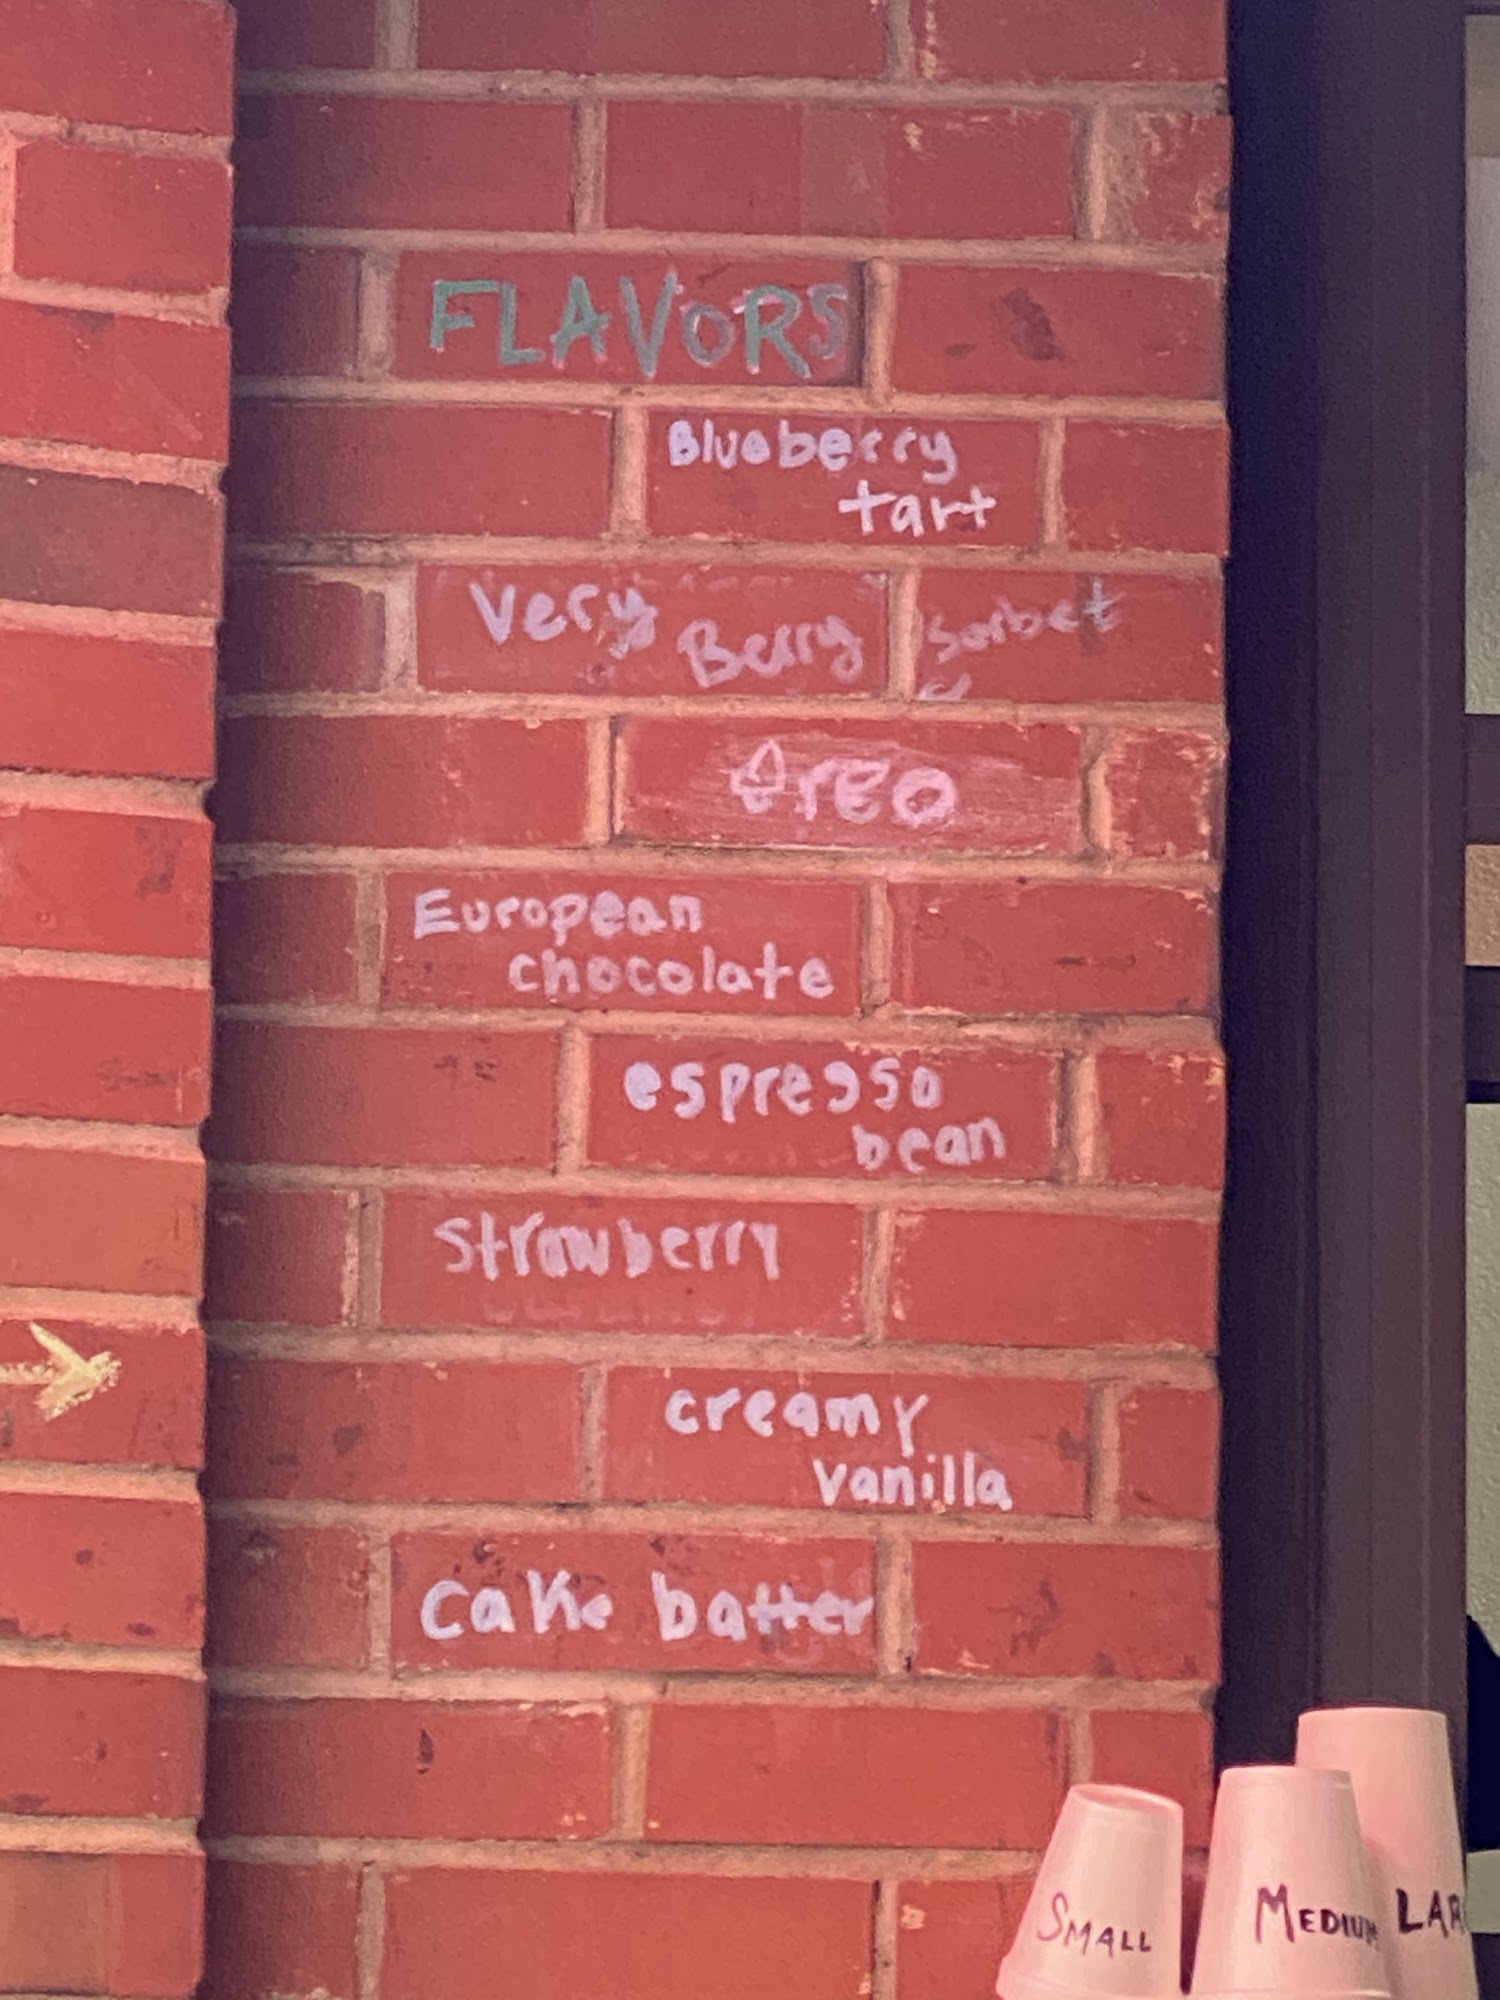 FLAVORS
Blueberry
tart
Very Berry Sorbet
Oreo
European
chocolate
espresso
bean
strawberry
creamy
vanilla
cake batter
SMALL
MEDIUM
LAR